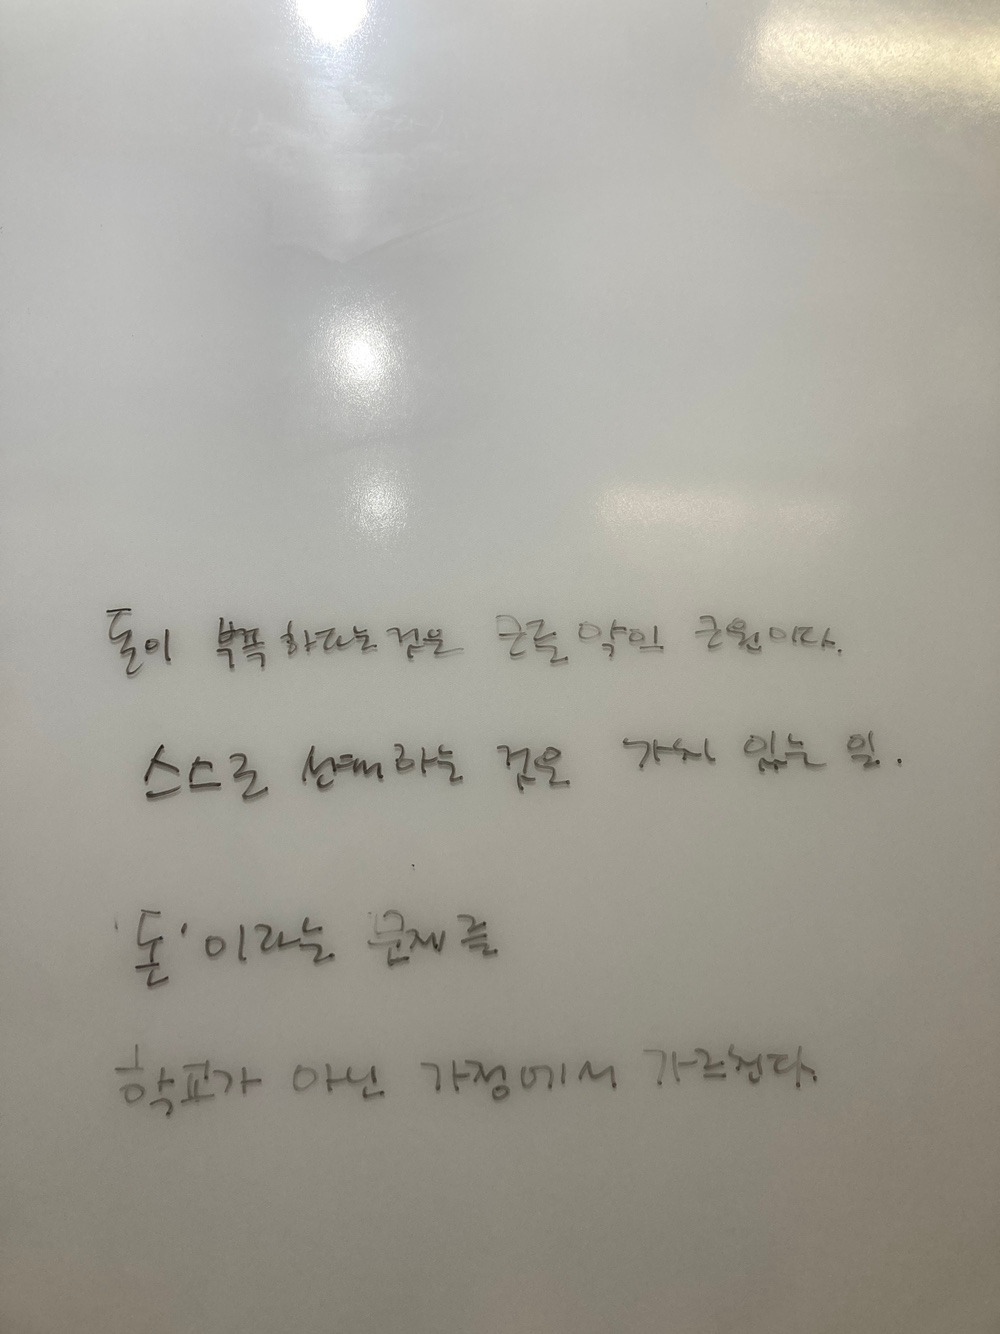 돈이 부족하다는 것은 모든 악의 근원이다.
스스로 선택하는 것은 가치 있는 일.
'돈'이라는 문제를
학교가 아닌 가정에서 가르친다.